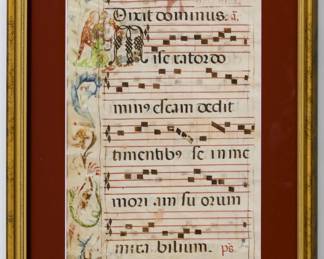 Dixit dominus. a.
Miserator do
minꝰ escam dedit
timentibꝰ se in me
moriam suorum
mirabilium. ps.